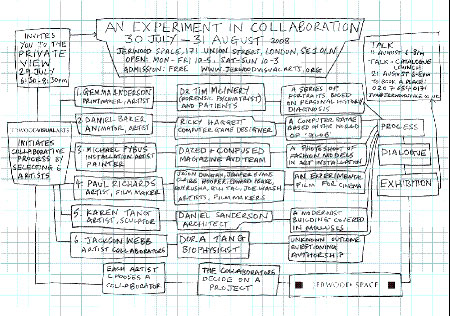 INVITES
YOU TO THE
PRIVATE
VIEW
29 JULY
6:30-8:30PM
AN EXPERIMENT IN COLLABORATION
30 JULY — 31 AUGUST 2008
JERWOOD SPACE, 171 UNION STREET, LONDON, SE1 0LN
OPEN: MON-FRI 10-5, SAT-SUN 10-3
ADMISSION: FREE WWW.JERWOODVISUALARTS.ORG
TALK
11 AUGUST 6-8PM
TALK + CATALOGUE
LAUNCH
21 AUGUST 6-8PM
TO BOOK A PLACE:
JERWOOD VISUAL ARTS
INITIATES
COLLABORATIVE
PROCESS BY
SELECTING 6
ARTISTS
1. GEMMA ANDERSON
PRINTMAKER, ARTIST
DR TIM McINERY
(FORENSIC PSYCHIATRIST)
AND PATIENTS
A SERIES OF
PORTRAITS BASED
ON PERSONAL HISTORY/
DIAGNOSIS
2. DANIEL BAKER
ANIMATOR, ARTIST
RICKY HAGGETT
COMPUTER GAME DESIGNER
A COMPUTER GAME
BASED IN THE WORLD
OF
3. MICHAEL PYBUS
INSTALLATION ARTIST
PAINTER
DAZED + CONFUSED
MAGAZINE AND TEAM
A PHOTOSHOOT OF
FASHION MODELS
IN ART INSTALLATION
4. PAUL RICHARDS
ARTIST, FILM MAKER
JASON DUNCAN,
CLAIRE HOOPER,
JOE WALSH
ARTISTS, FILMMAKERS
AN EXPERIMENTAL
FILM FOR CINEMA
5. KAREN TANG
ARTIST, SCULPTOR
DANIEL SANDERSON
ARCHITECT
A MODERNIST
BUILDING COVERED
IN MOLLUSCS
6. JACKSON WEBB
ARTIST COLLABORATORS
DORA TANG
BIOPHYSICIST
UNKNOWN OUTCOME
QUESTIONING
AUTHORSHIP
PROCESS
DIALOGUE
EXHIBITION
EACH ARTIST
CHOOSES A
COLLABORATOR
THE COLLABORATORS
DECIDE ON A
PROJECT
JERWOOD SPACE